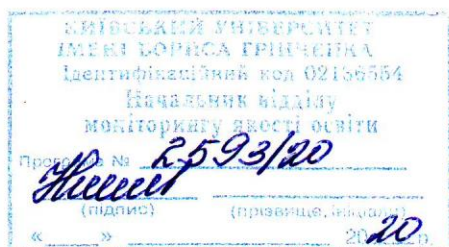 КИЇВСЬКИЙ УНІВЕРСИТЕТ
ІМЕНІ БОРИСА ГРІНЧЕНКА
Ідентифікаційний код 02136554
Начальник відділу
моніторингу якості освіти
Програма № 2593/20
(підпис) (прізвище, ініціали)
« » 2020 р.